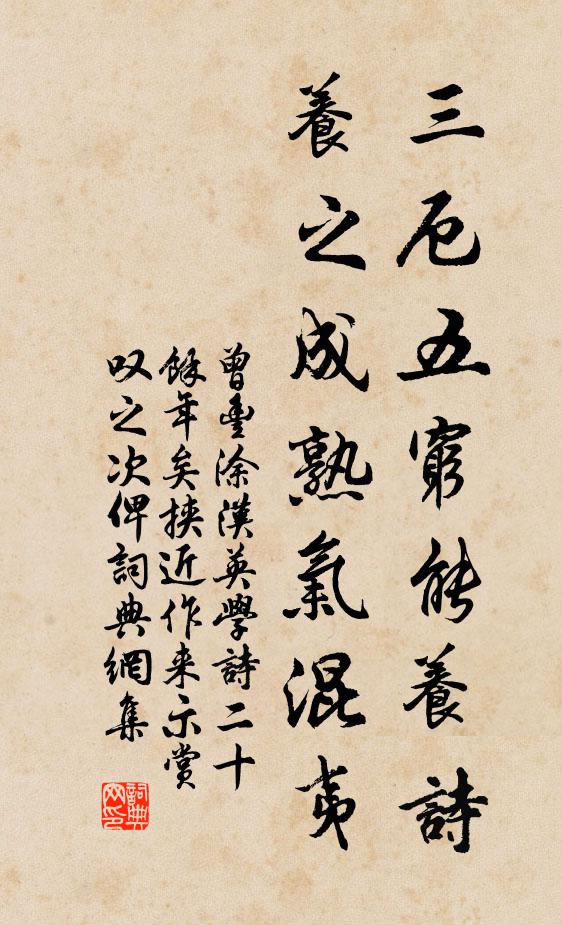 三厄五窮能養詩
養之成熟氣混夷
曾豐涂漢英學詩二十
餘年矣挾近作来示賞
叹之次俾詞典網集
詞典网印